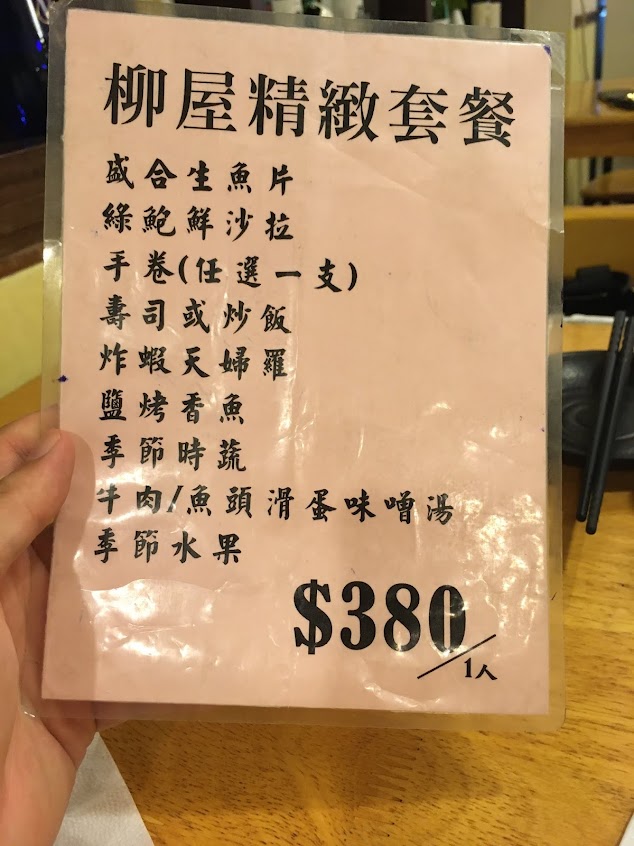 柳屋精緻套餐
盛合生魚片
綠鮑鮮沙拉
手卷(任選一支)
壽司或炒飯
炸蝦天婦羅
鹽烤香魚
季節時蔬
牛肉/魚頭滑蛋味噌湯
季節水果
$380/1人